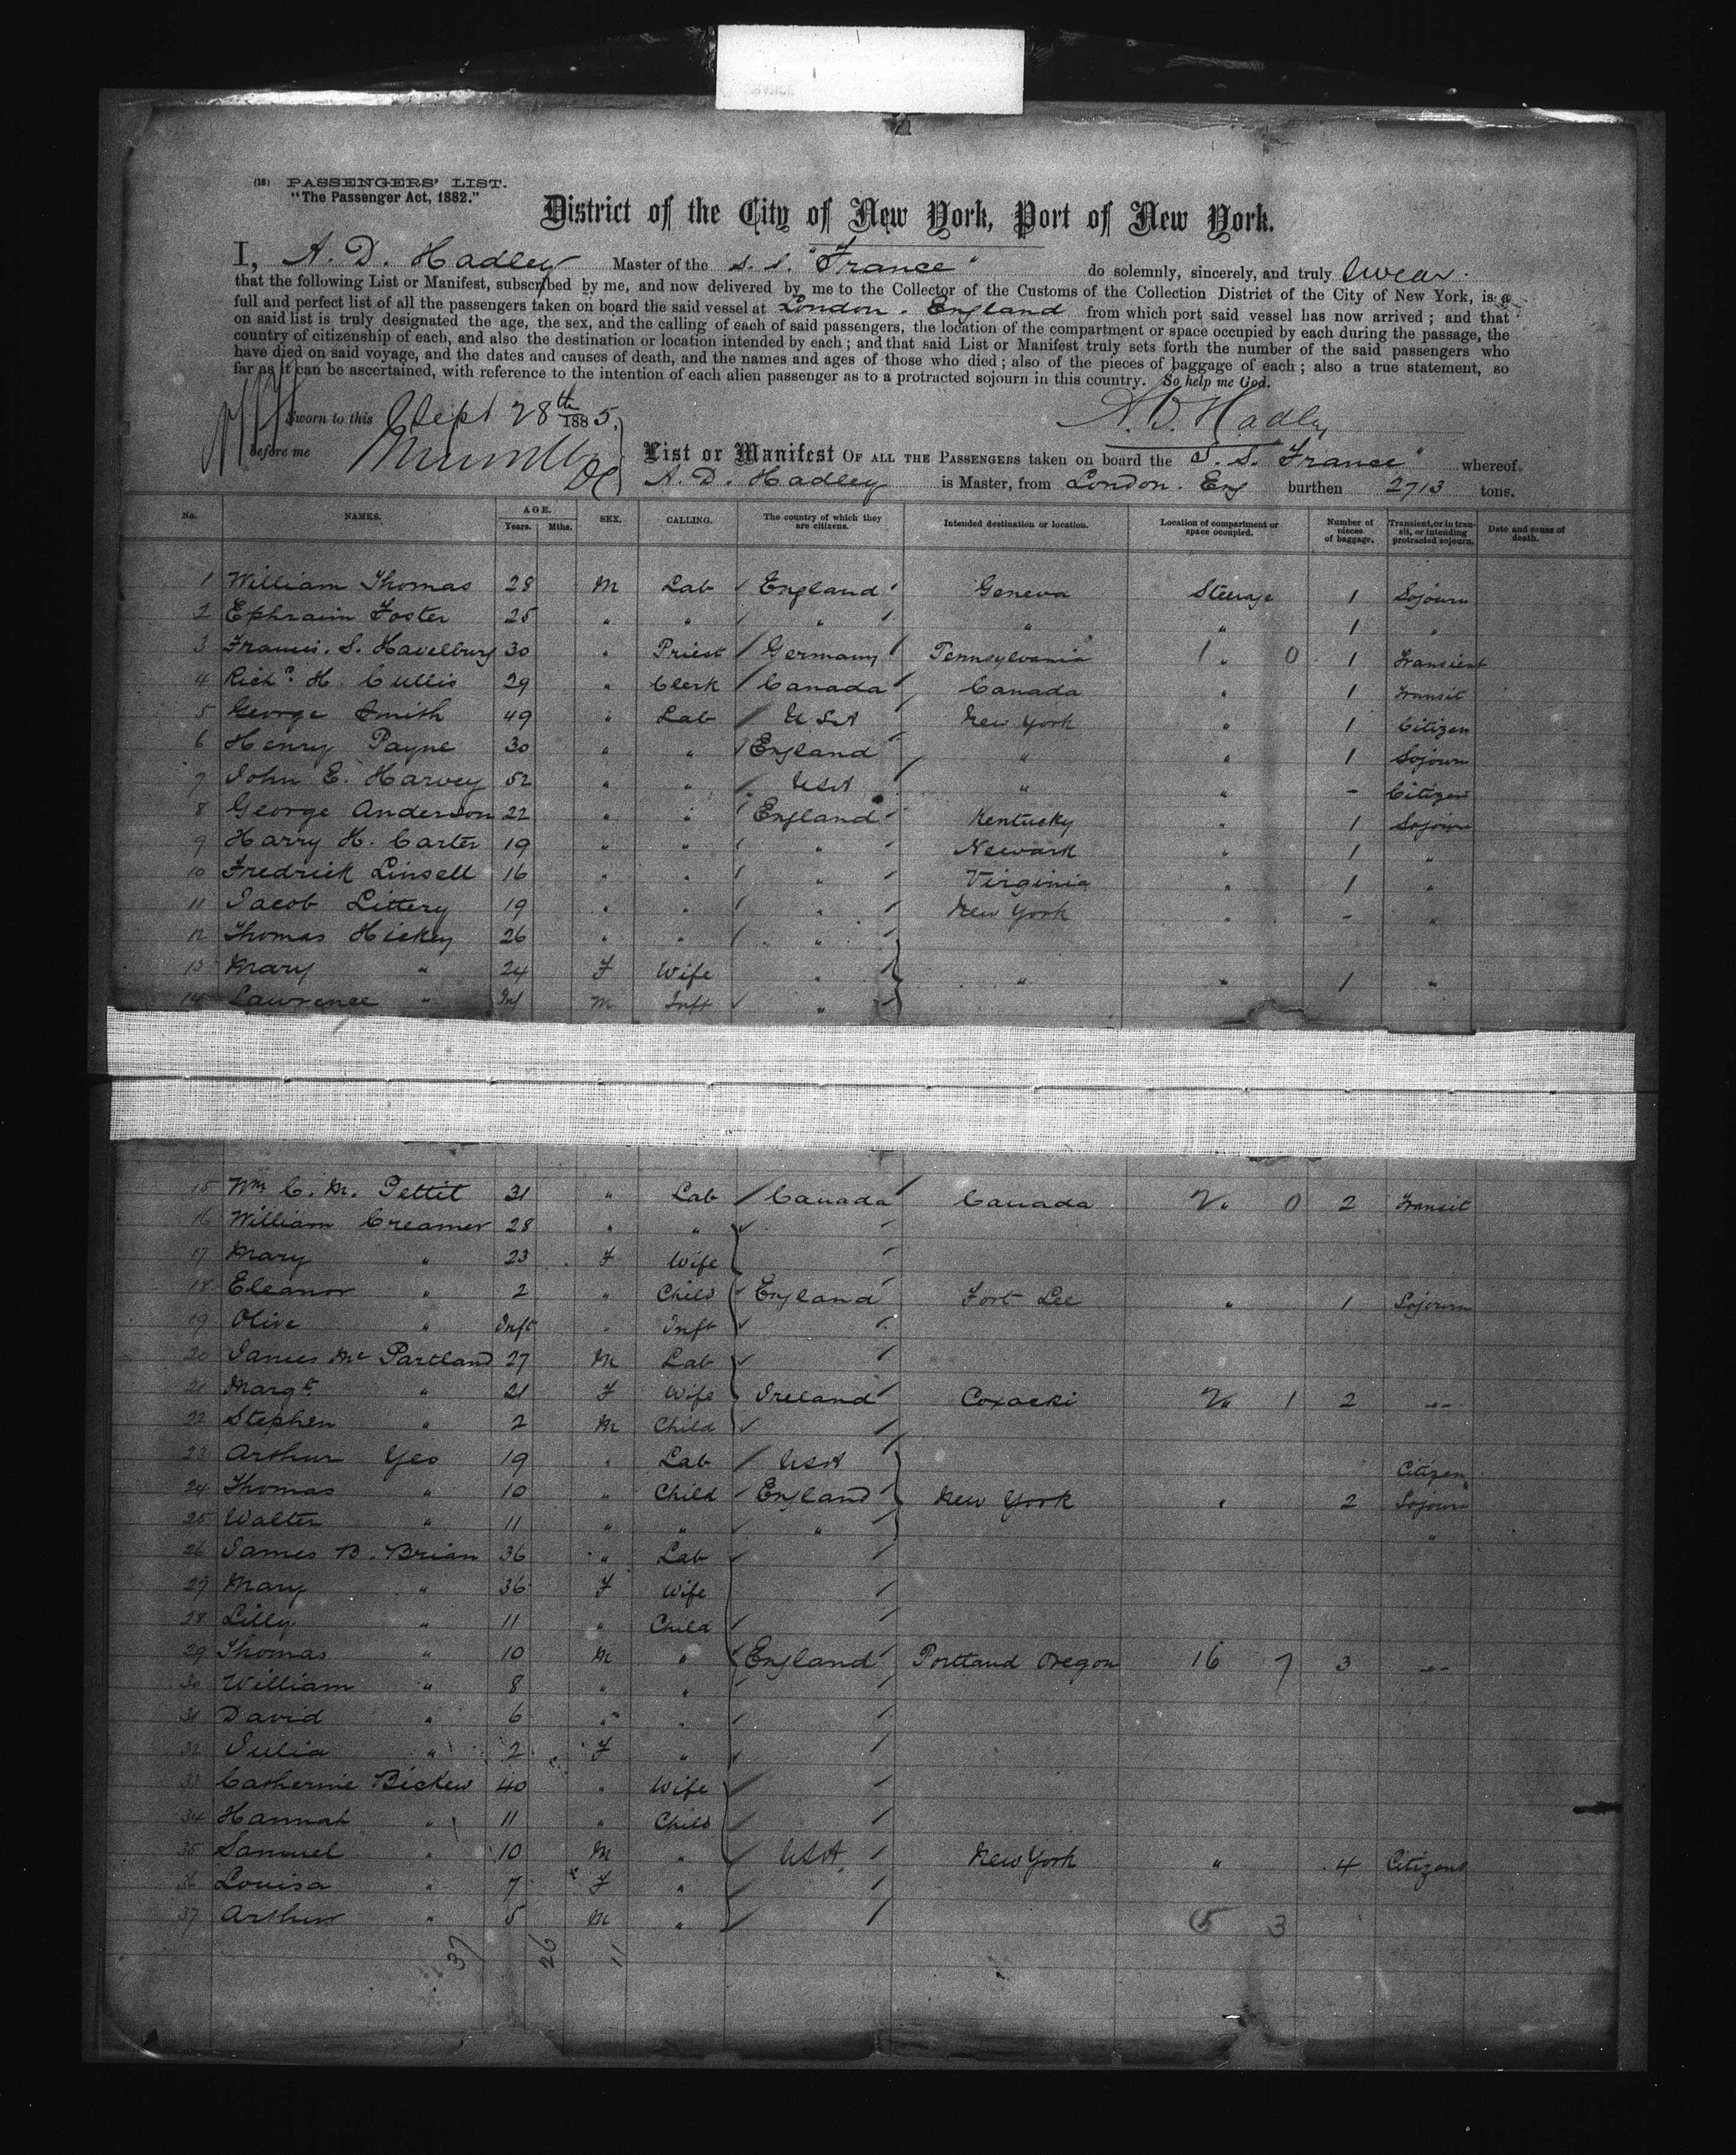 (18) PASSENGERS' LIST.
"The Passenger Act, 1882."
District of the City of New York, Port of New York.
I, A. D. Hadley Master of the S. S. "France" do solemnly, sincerely, and truly swear
that the following List or Manifest, subscribed by me, and now delivered by me to the Collector of the Customs of the Collection District of the City of New York, is a
full and perfect list of all the passengers taken on board the said vessel at London. England from which port said vessel has now arrived; and that
on said list is truly designated the age, the sex, and the calling of each of said passengers, the location of the compartment or space occupied by each during the passage, the
country of citizenship of each, and also the destination or location intended by each; and that said List or Manifest truly sets forth the number of the said passengers who
have died on said voyage, and the dates and causes of death, and the names and ages of those who died; also of the pieces of baggage of each; also a true statement, so
far as it can be ascertained, with reference to the intention of each alien passenger as to a protracted sojourn in this country. So help me God.
Sworn to this Sept 28th 1885. A. D. Hadley
before me
List or Manifest OF ALL THE PASSENGERS taken on board the S. S. France" whereof
A. D. Hadley is Master, from London. Eng burthen 2713 tons.
No. NAMES. AGE. Years. Mths. SEX. CALLING. The country of which they are citizens. Intended destination or location. Location of compartment or space occupied. Number of pieces of baggage. Transient, or in transit, or intending protracted sojourn. Date and cause of death.
1 William Thomas 28 M Lab England Geneva Steerage 1 Sojourn
2 Ephraim Foster 25 " " " " " 1 "
3 Francis. S. Havelburg 30 " Priest Germany Pennsylvania 1 " 0 1 Transient
4 Richd H Cullis 29 " Clerk Canada Canada " 1 Transit
5 George Smith 49 " Lab USA New York " 1 Citizen
6 Henry Payne 30 " " England " " 1 Sojourn
7 John E. Harvey 52 " " USA " " - Citizen
8 George Anderson 22 " " England Kentucky " 1 Sojourn
9 Harry H. Carter 19 " " " Newark " 1 "
10 Fredrick Linsell 16 " " " Virginia " 1 "
11 Jacob Littery 19 " " " New York " - "
12 Thomas Hickey 26 " " "
13 Mary " 24 F Wife " " " 1 "
14 Lawrence " Inf M Inft "
15 Wm C. M. Pettit 31 " Lab Canada Canada 2 " 0 2 Transit
16 William Creamer 28 " "
17 Mary " 23 F Wife
18 Eleanor " 2 " Child England Fort Lee " 1 Sojourn
19 Olive " Inft " Inft
20 James McPartland 27 M Lab
21 Margt " 21 F Wife Ireland Coxacki 2 " 1 2 "
22 Stephen " 2 M Child
23 Arthur Yeo 19 " Lab USA Citizen
24 Thomas " 10 " Child England New York " 2 Sojourn
25 Walter " 11 " " " "
26 James B. Brian 36 " Lab
27 Mary " 36 F Wife
28 Lilly " 11 " Child
29 Thomas " 10 M " England Portland Oregon 16 7 3 "
30 William " 8 " "
31 David " 6 " "
32 Julia " 2 F "
33 Catherine Bickew 40 " Wife
34 Hannah " 11 " Child
35 Samuel " 10 M " USA New York " 4 Citizens
36 Louisa " 7 F "
37 Arthur " 5 M "
5 3
37 26 11